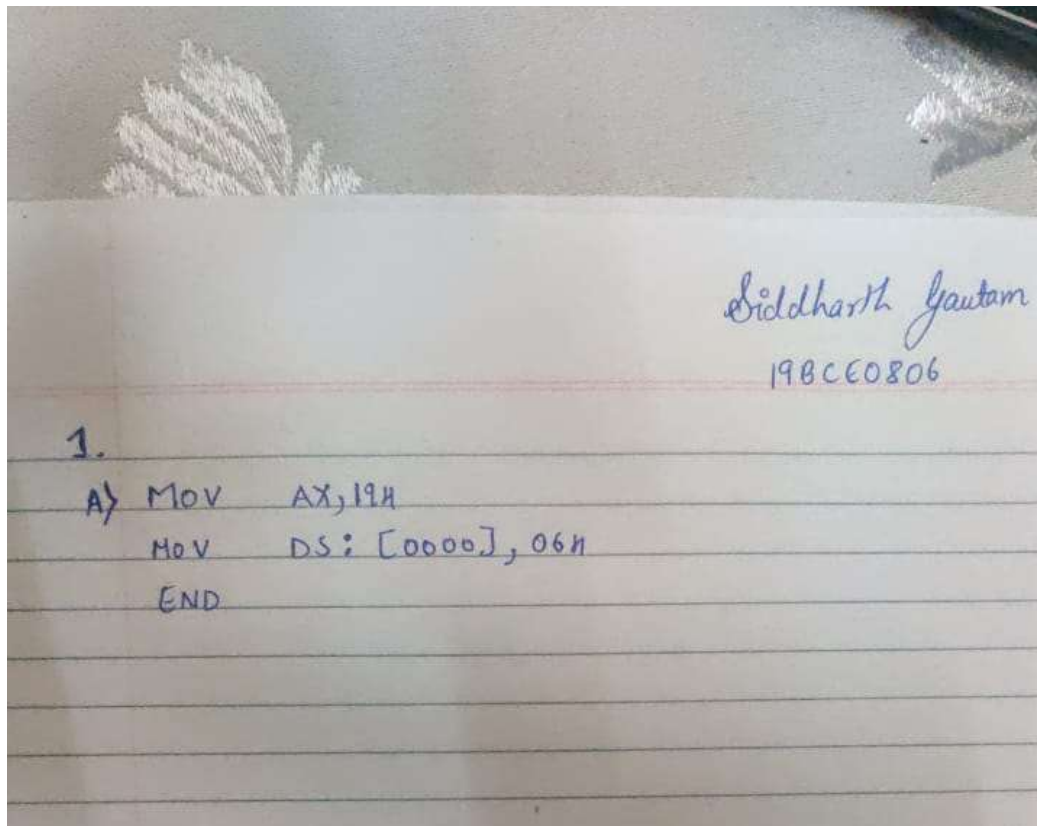 Siddharth Gautam
19BCE0806
1.
A) MOV AX, 19H
MOV DS: [0000], 06H
END